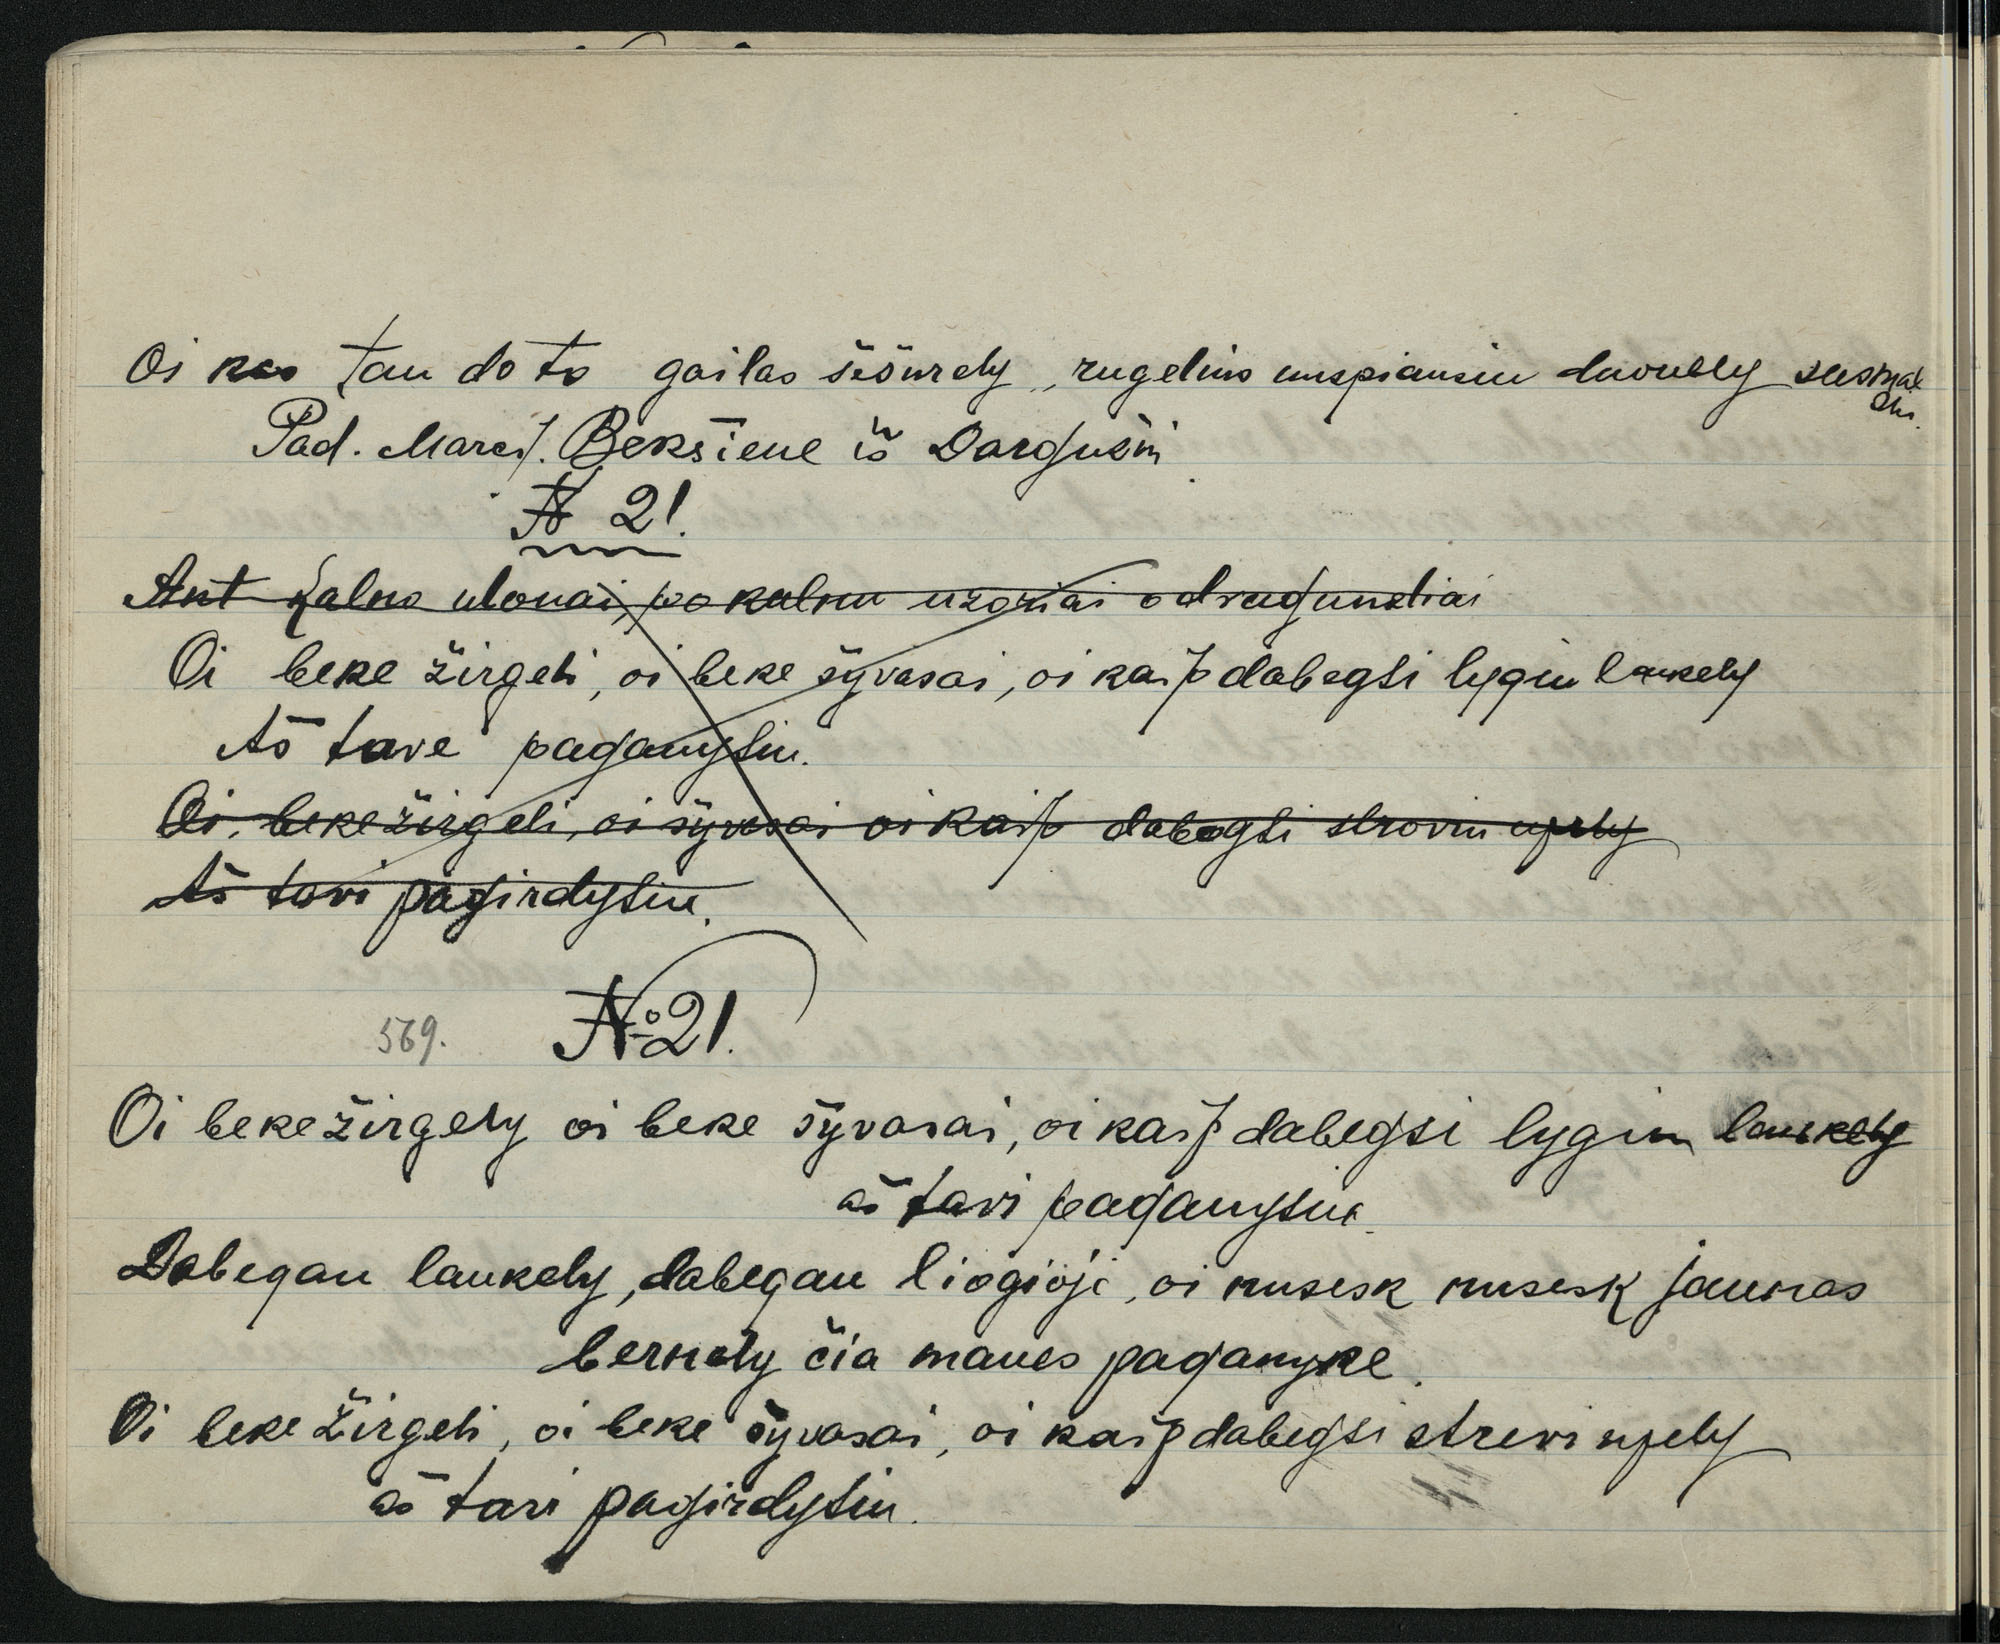 Oi kas tau do to gailas šiöurely, rugelius nuspiausiu duonely susmal
siu.
Pad. Marcj. Bekšiene iš Dargužiu
N 21.
Ant kalno ulonai, po kalnu uzoriai o draguneliai
Oi beke žirgeli, oi beke šyvasai, oi kaip dabegsi lygiu laukely
Aš tave paganysiu.
Oi, beke žirgeli, oi šyvasai oi kaip dabegsi srovin upely
Aš tavi pagirdysiu.
569. № 21.
Oi beke žirgely oi beke šyvasai, oi kaip dabegsi lygiu laukely
aš tavi paganysiu.
Dabegau laukely, dabegau liogiöji, oi nusesk nusesk jaunas
bernely čia manes paganyke.
Oi beke žirgeli, oi beke šyvasai, oi kaip dabegsi strevi upely
aš tavi pagirdysiu.